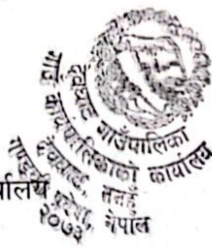 देवघाट गाउँपालिका
गाउँ कार्यपालिकाको कार्यालय
देवघाट, तनहुँ
गण्डकी प्रदेश, नेपाल
२०७३
र्यालय